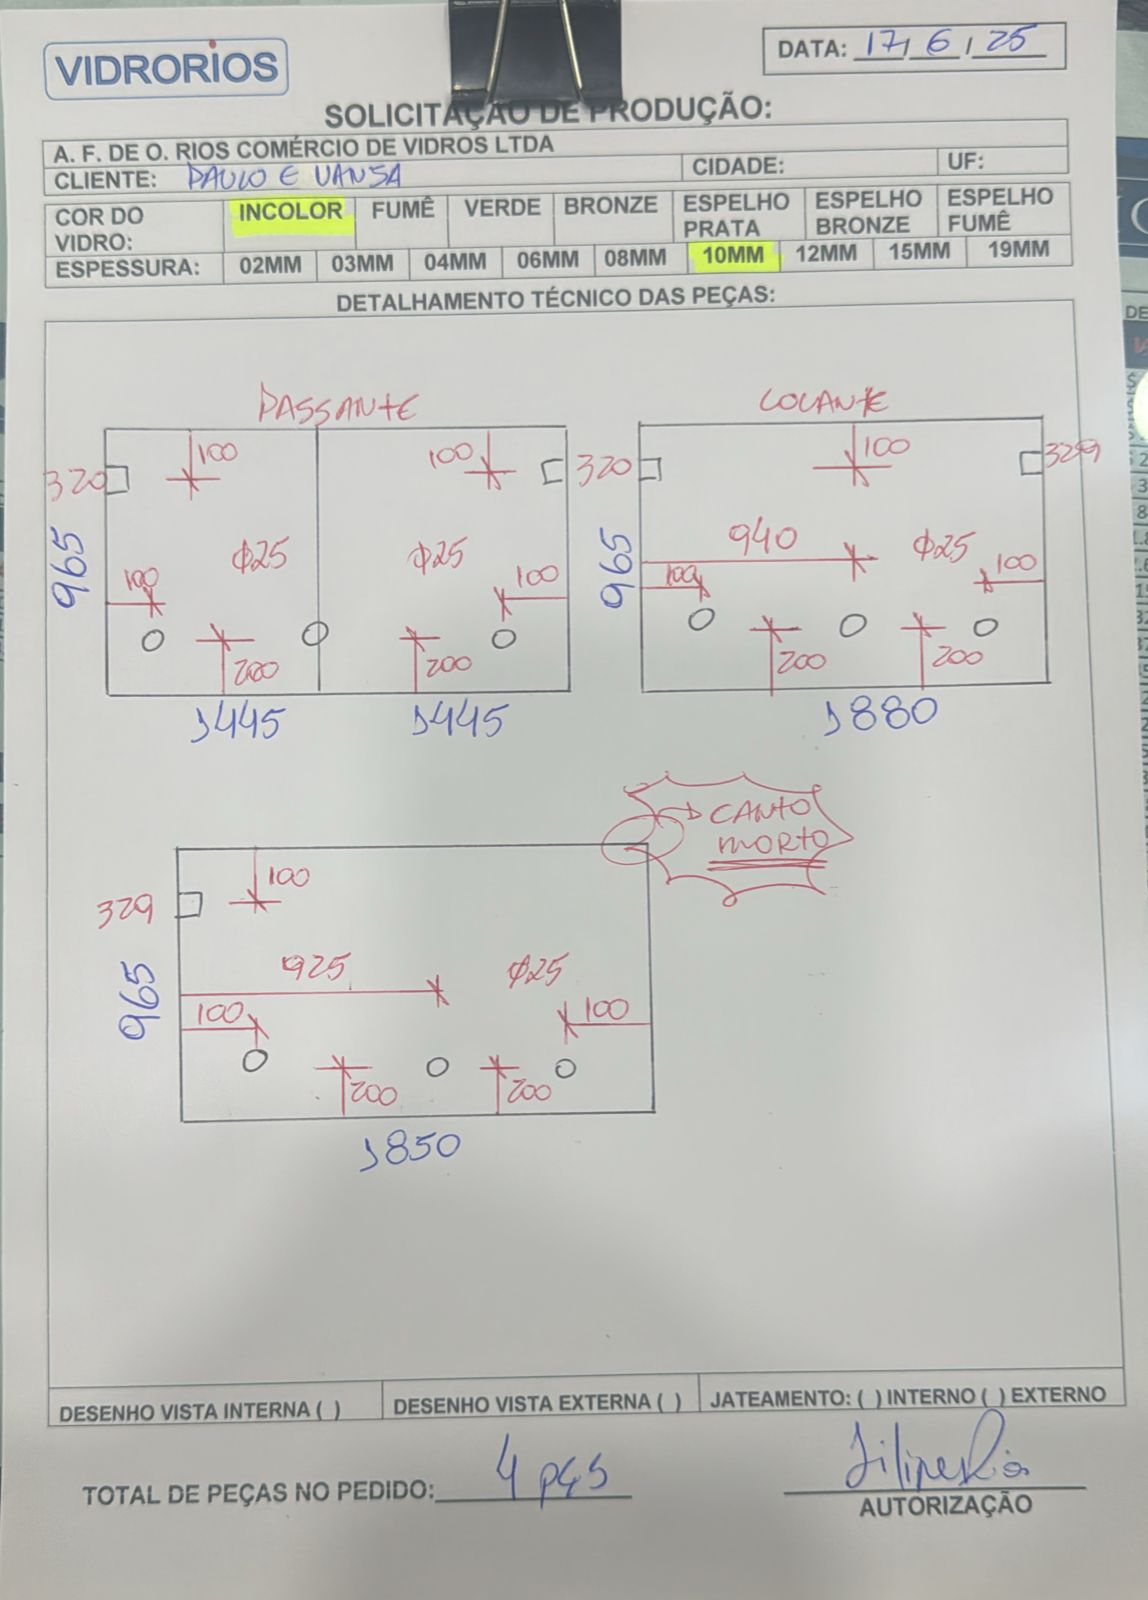 VIDRORIOS
DATA: 17/6/25
SOLICITAÇÃO DE PRODUÇÃO:
A. F. DE O. RIOS COMÉRCIO DE VIDROS LTDA
CLIENTE: PAULO E VANSA CIDADE: UF:
COR DO VIDRO: INCOLOR FUMÊ VERDE BRONZE ESPELHO PRATA ESPELHO BRONZE ESPELHO FUMÊ
ESPESSURA: 02MM 03MM 04MM 06MM 08MM 10MM 12MM 15MM 19MM
DETALHAMENTO TÉCNICO DAS PEÇAS:
PASSANTE
320 100 100 320
965
Φ25 Φ25
100 100
200 200
1445 1445
COLANTE
100 329
965
940 Φ25
100 100
200 200
1880
CANTO
MORTO
100
329
965
925 Φ25
100 100
200 200
1850
DESENHO VISTA INTERNA ( ) DESENHO VISTA EXTERNA ( ) JATEAMENTO: ( ) INTERNO ( ) EXTERNO
TOTAL DE PEÇAS NO PEDIDO: 4 pçs
AUTORIZAÇÃO